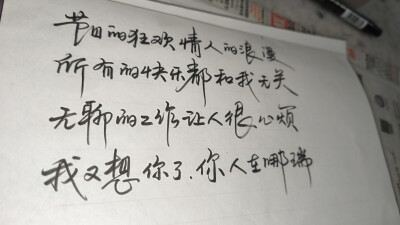 节日的狂欢情人的浪漫
所有的快乐都和我无关
无聊的工作让人很心烦
我又想你了.你人在哪端